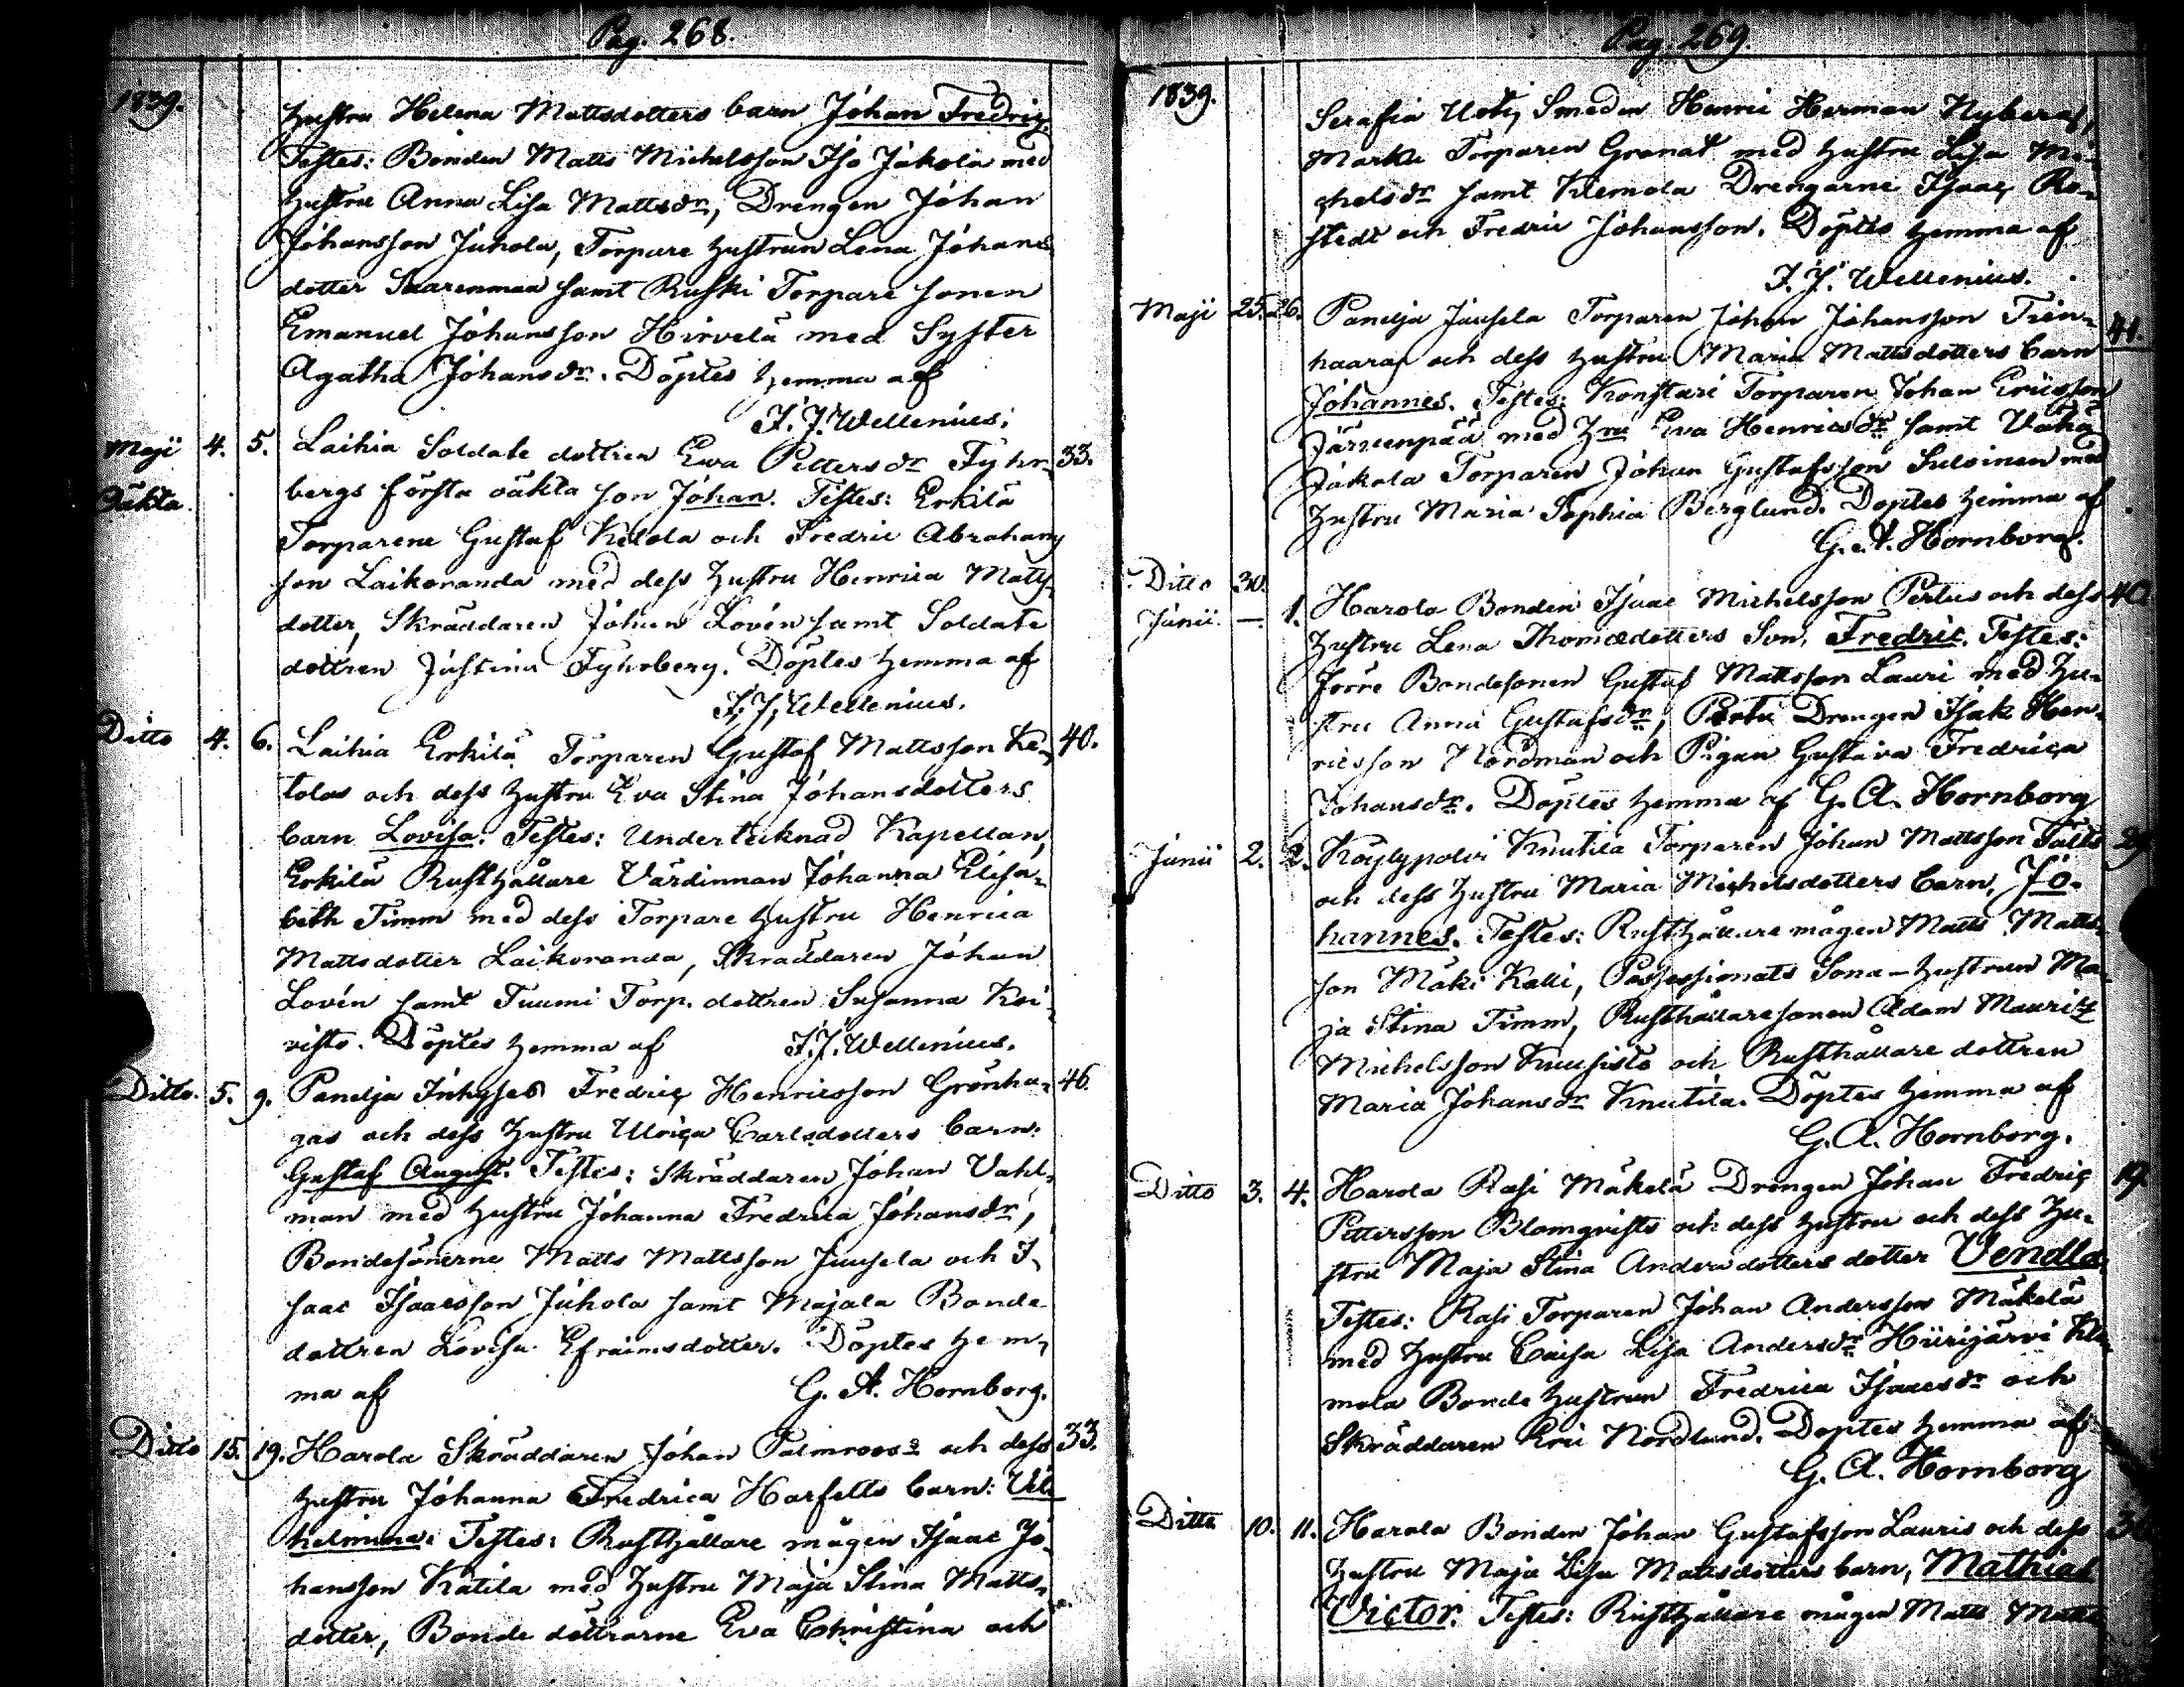 Pag. 268.
1839.
hustru Helena Mattsdotters barn Johan Fredric.
Testes: Bonden Matts Michelsson Iso Jakola med
hustru Anna Lisa Mattsdr, Drengen Johan
Johansson Juhola, Torpare hustrun Lena Johans
dotter Saarenmaa samt Ruski Torpare sonen
Emanuel Johansson Hirvelä med Syster
Agatha Johansdr. Döptes hemma af
F. J. Wellenius.
Maji 4. 5. Laihia Soldate dottren Eva Pettersdr Fyhr- 33.
Oäkta. bergs första oäkta son Johan. Testes: Erkilä
Torparene Gustaf Ketola och Fredric Abrahams
son Laikoranda med dess hustru Henrica Matts
dotter, Skräddaren Johan Lovén samt Soldate
dottren Justina Fyhrberg. Döptes hemma af
F. J. Wellenius.
Ditto 4. 6. Laihia Erkilä Torparen Gustaf Mattsson Ke- 40.
tolas och dess hustru Eva Stina Johansdotters
barn Lovisa. Testes: Undertecknad Kapellan,
Erkilä Rusthållare Värdinnan Johanna Elisa-
beth Timm med dess Torpare hustru Henrica
Mattsdotter Laikoranda, Skräddaren Johan
Lovén samt Tuumi Torp. dottren Susanna Koi-
visto. Döptes hemma af F. J. Wellenius.
Ditto. 5. 9. Panelja Inhyses Fredric Henricsson Grönha- 46.
gas och dess hustru Ulrica Carlsdotters barn:
Gustaf August. Testes: Skräddaren Johan Vahl-
man med hustru Johanna Fredrica Johansdr,
Bondesönerne Matts Mattsson Juusela och I-
saac Isaacsson Juhola samt Majala Bonde
dottren Lovisa Efraimsdotter. Döptes hem-
ma af G. A. Hornborg.
Ditto 15. 19. Harola Skräddaren Johan Palmroos's och dess 33.
hustru Johanna Fredrica Harfelts barn: Vil-
helmina. Testes: Rusthållare mågen Isaac Jo-
hansson Katila med hustru Maja Stina Matts-
dotter, Bonde döttrarne Eva Christina och
Pag. 269.
1839.
Serafia Uoti, Smeden Henric Herman Nyberg,
Marku Torparen Granat med hustru Lisa Mi-
chelsdr samt Klemola Drengarne Isaac Ro-
stedt och Fredric Johansson. Döptes hemma af
F. J. Wellenius.
Maji 25. 26. Panelja Juusela Torparen Johan Johansson Tien-
haaras och dess hustru Maria Mattsdotters barn 41.
Johannes. Testes: Konstari Torparen Johan Ericsson
Järvenpää med hru Eva Henricsdr samt Vähä
Jakola Torparen Johan Gustafsson Suloinen med
hustru Maria Sophia Berglund. Döptes hemma af
G. A. Hornborg.
Ditto 30.
Junii. — 1. Harola Bonden Isaac Michelsson Pertus och dess 40
hustru Lena Thomædotters Son, Fredric. Testes:
förre Bondesonen Gustaf Mattsson Lauri med hu-
stru Anna Gustafsdr, Pertu Drengen Isak Hen-
ricsson Nordman och Pigan Gustava Fredrica
Johansdr. Döptes hemma af G. A. Hornborg
Junii 2. 2. Köylypolvi Knutila Torparen Johan Mattsson Fälts 29.
och dess hustru Maria Michelsdotters barn, Jo-
hannes. Testes: Rusthållare mågen Matts Matts-
son Mäki Kalli, Possessionats Sona-hustrun Ma-
ja Stina Timm, Rusthållaresonen Adam Mauritz
Michelsson Kuusisto och Rusthållare dottren
Maria Johansdr Knutila. Döptes hemma af
G. A. Hornborg.
Ditto 3. 4. Harola Rasi Mäkelä Drengen Johan Fredric 19.
Pettersson Blomqvists och dess hustru och dess hu-
stru Maja Stina Andersdotters dotter Vendla.
Testes: Rasi Torparen Johan Andersson Mäkelä
med hustru Caisa Lisa Andersdr Hiirijärvi Kle-
mola Bonde hustrun Fredrica Isaacsdr och
Skräddaren Eric Nordlund. Döptes hemma af
G. A. Hornborg
Ditto 10. 11. Harola Bonden Johan Gustafsson Lauris och dess
hustru Maja Lisa Mattsdotters barn, Mathias
Victor. Testes: Rusthållare mågen Matts Matts